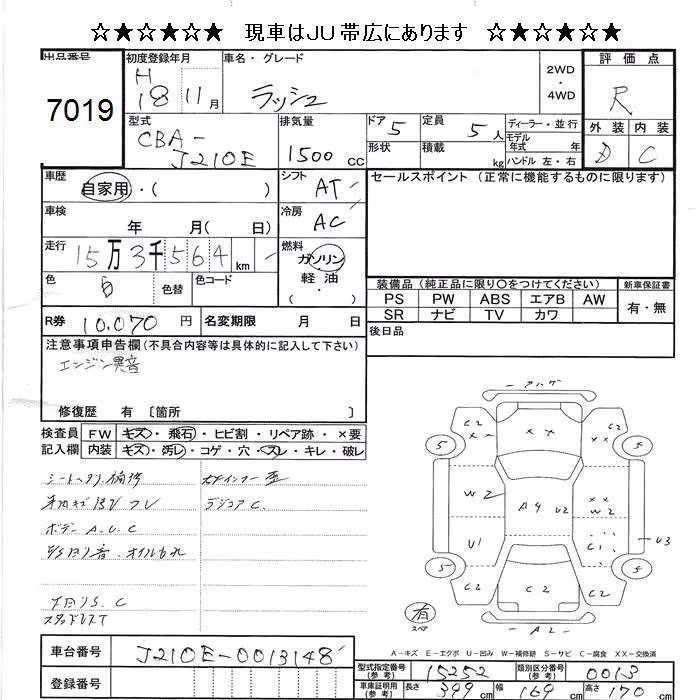 ☆★☆★☆★☆ 現車はJU帯広にあります ☆★☆★☆★☆
出品番号 初度登録年月 車名・グレード 2WD ・ 4WD 評価点
7019 H 18 11月 ラッシュ R
型式 排気量 ドア 定員 ディーラー・並行 外装 内装
CBA-J210E 1500cc 5 5人 モデル年式 年 D C
形状 積載 kg ハンドル 左・右
車歴 自家用・( ) シフト AT セールスポイント (正常に機能するものに限ります)
車検 年 月( 日) 冷房 AC
走行 15万3千564km 燃料 ガソリン・軽油
色 白 色替 色コード ・( )
装備品(純正品に限り○をつけてください) 新車保証書
PS PW ABS エアB AW 有・無
SR ナビ TV カワ
R券 10,070円 名変期限 月 日 後日品
注意事項申告欄(不具合内容等は具体的に記入して下さい)
エンジン異音
修復歴 有 〔箇所 〕
検査員記入欄 FW キズ・飛石・ヒビ割・リペア跡・×要
内装 キズ・汚レ・コゲ・穴・スレ・キレ・破レ
ボデー A.U.C
ラジコア C.
下回りS.C
スタッドレス
C2 ×× ×× C2
5 5
W2 A4 U2 ×× W2
U1 C1 U3
5 5
C2 C2 C2
有 スペア
A2
A-キズ E-エクボ U-凹み W-補修跡 S-サビ C-腐食 XX-交換済
車台番号 J210E-0013148
登録番号
型式指定番号(参考) 15252 類別区分番号(参考) 0013
車庫証明用(参考) 長さ 399cm 幅 169cm 高さ 170cm